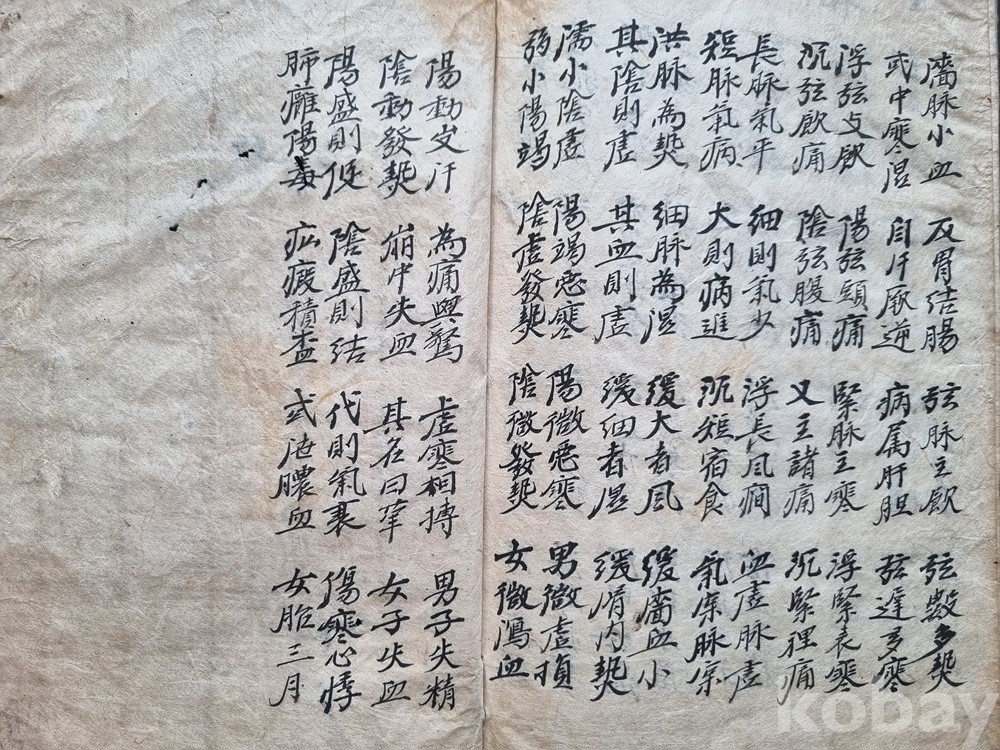 濇脉小血 反胃結腸 弦脉主飲 弦數多熱
或中寒湿 自汗厥逆 病属肝胆 弦遲多寒
浮弦支飲 陽弦頭痛 緊脉主寒 浮緊表寒
沉弦飲痛 陰弦腹痛 又主諸痛 沉緊裡痛
長脉氣平 細則氣少 浮長风癇 血虛脉虛
短脉氣病 大則病進 沉短宿食 氣実脉実
洪脉為熱 細脉為湿 緩大者風 緩濇血小
其陰則虛 其血則虛 緩細者湿 緩滑内熱
濡小陰虛 陽竭惡寒 陽微惡寒 男微虛損
弱小陽竭 陰虛發熱 陰微發熱 女微瀉血
陽動汗 為痛與驚 虛寒相搏 男子失精
陰動發熱 崩中失血 其名曰革 女子失血
陽盛則促 陰盛則結 代則氣衰 傷寒心悸
肺癰陽毒 疝瘕積 或泄膿血 女胎三月
kobay